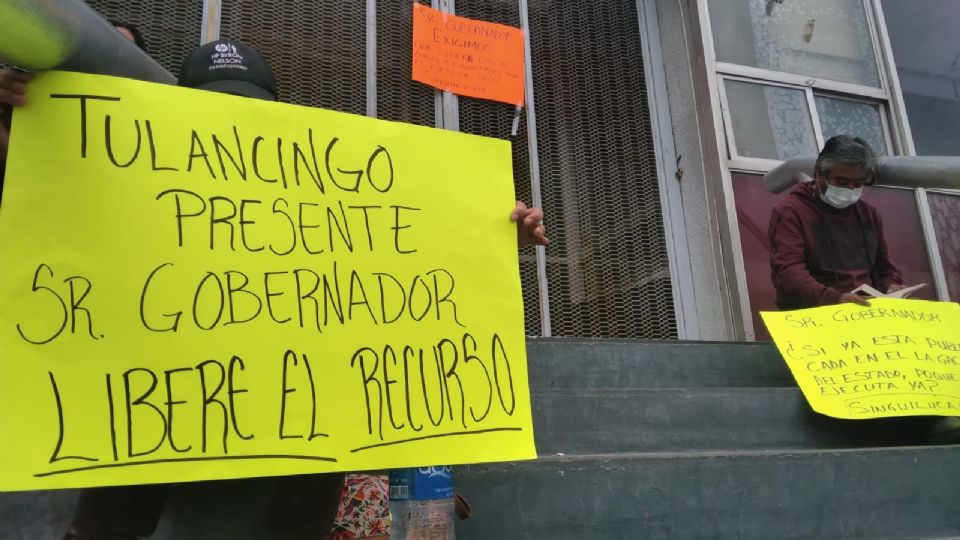 TULANCINGO
PRESENTE
SR. GOBERNADOR
LIBERE EL RECURSO
HP BYRON
NELSON
CHAMPIONSHIP
SR. GOBERNADOR
EXIGIMOS
QUE
SR. GOBERNADOR
¿SI YA ESTA PUBLI
CADA EN EL LA GAC
DEL ESTADO, POQUE
EJECUTA YA?
SINGUILUCA